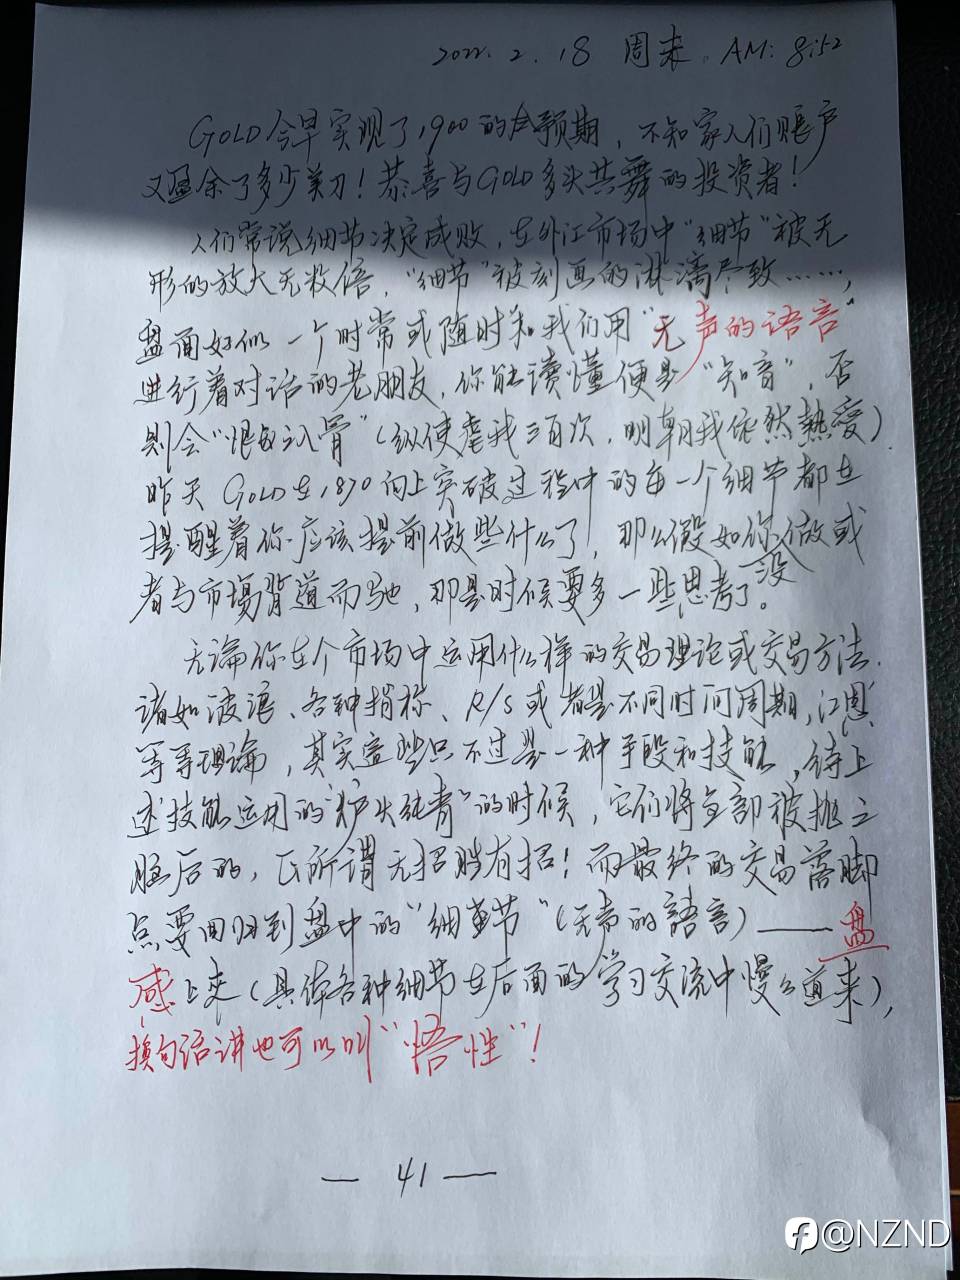 2022. 2. 18 周末. AM: 8:52
GOLD今早实现了1900的预期，不知家人们账户
又盈余了多少美刀！恭喜与GOLD多头共舞的投资者！
人们常说细节决定成败，在外汇市场中“细节”被无
形的放大无数倍，“细节”被刻画的淋漓尽致……，
盘面好似一个时常或随时和我们用“无声的语言”
进行着对话的老朋友，你能读懂便是“知音”，否
则会“恨之入骨”（纵使虐我三百次，明朝我依然熱爱）
昨天GOLD在1870向上突破过程中的每一个细节都在
提醒着你应该提前做些什么了！那么假如你没做或
者与市場背道而驰，那是时候要多一些思考了。
无论你在个市场中运用什么样的交易理论或交易方法，
诸如波浪、各种指标、R/S或者是不同时间周期，江恩、
等等理论，其实这些只不过是一种手段和技能，待上
述技能运用的“炉火纯青”的时候，它们将全部被抛之
脑后的，正所谓无招胜有招！而最终的交易落脚
点要回归到盘中的“细节”（无声的語言）——盘
感上来（具体各种细节在后面的学习交流中慢慢道来），
换句话讲也可以叫“悟性”！
— 41 —
@NZND